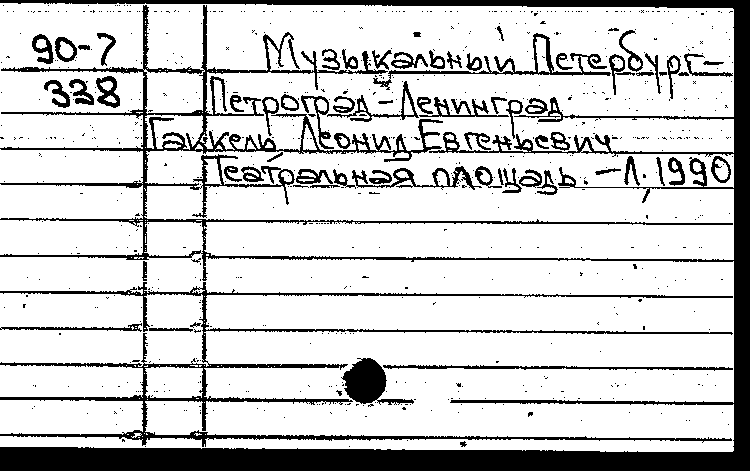 90-7 Музыкальный Петербург-
338 Петроград-Ленинград
Гаккель Леонид Евгеньевич
Театральная площадь. - Л., 1990